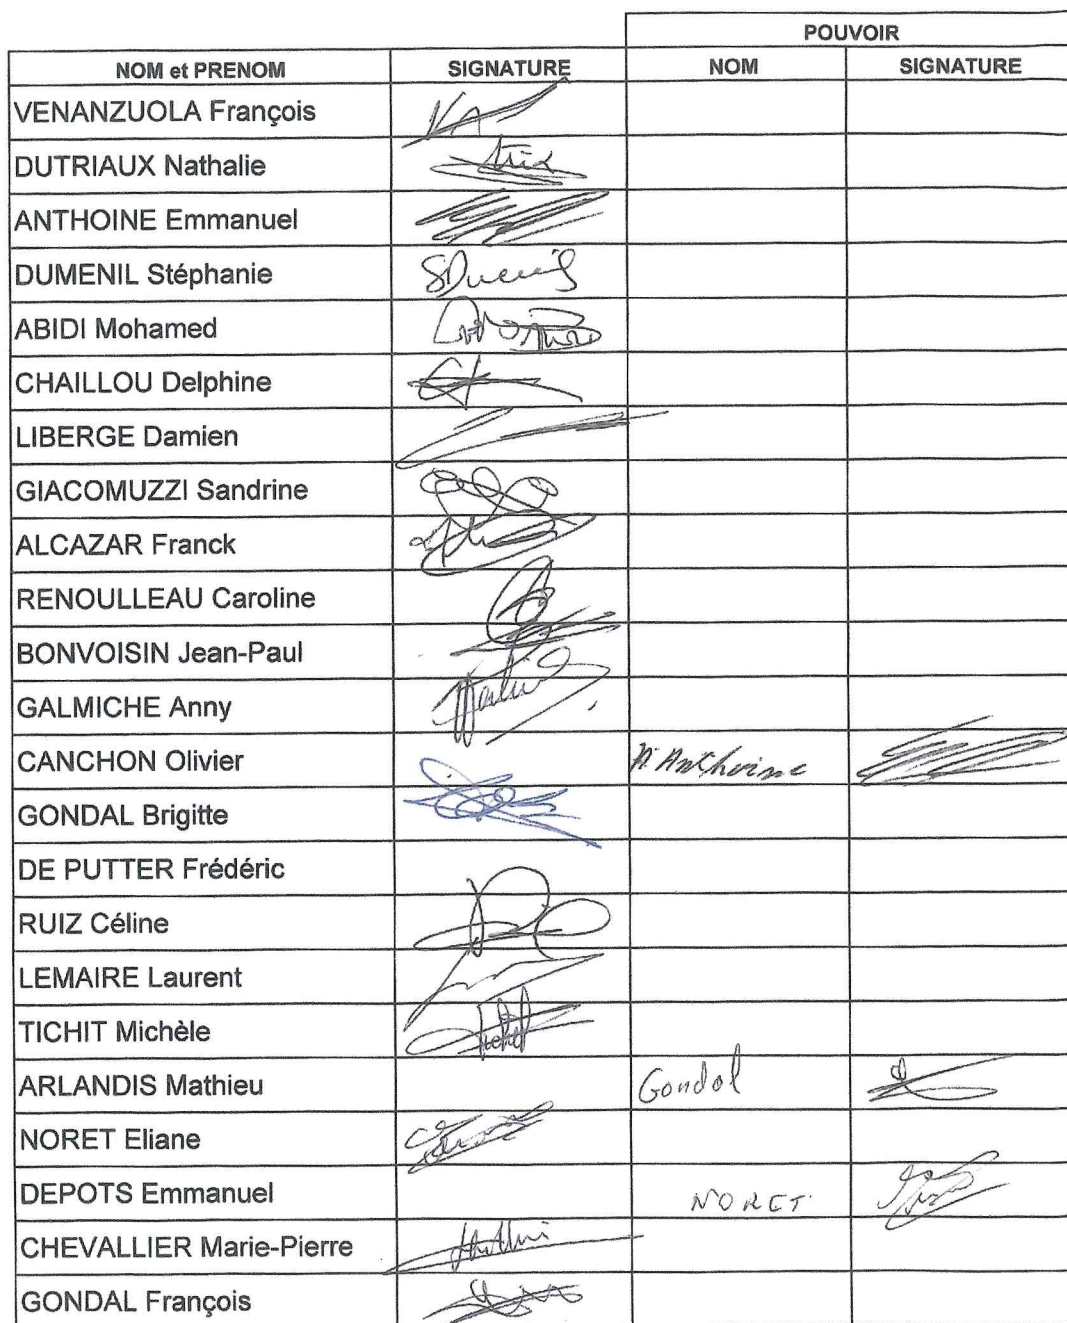 POUVOIR
NOM et PRENOM SIGNATURE NOM SIGNATURE
VENANZUOLA François
DUTRIAUX Nathalie
ANTHOINE Emmanuel
DUMENIL Stéphanie
ABIDI Mohamed
CHAILLOU Delphine
LIBERGE Damien
GIACOMUZZI Sandrine
ALCAZAR Franck
RENOULLEAU Caroline
BONVOISIN Jean-Paul
GALMICHE Anny
CANCHON Olivier Anthoine
GONDAL Brigitte
DE PUTTER Frédéric
RUIZ Céline
LEMAIRE Laurent
TICHIT Michèle
ARLANDIS Mathieu Gondol
NORET Eliane
DEPOTS Emmanuel NORET
CHEVALLIER Marie-Pierre
GONDAL François